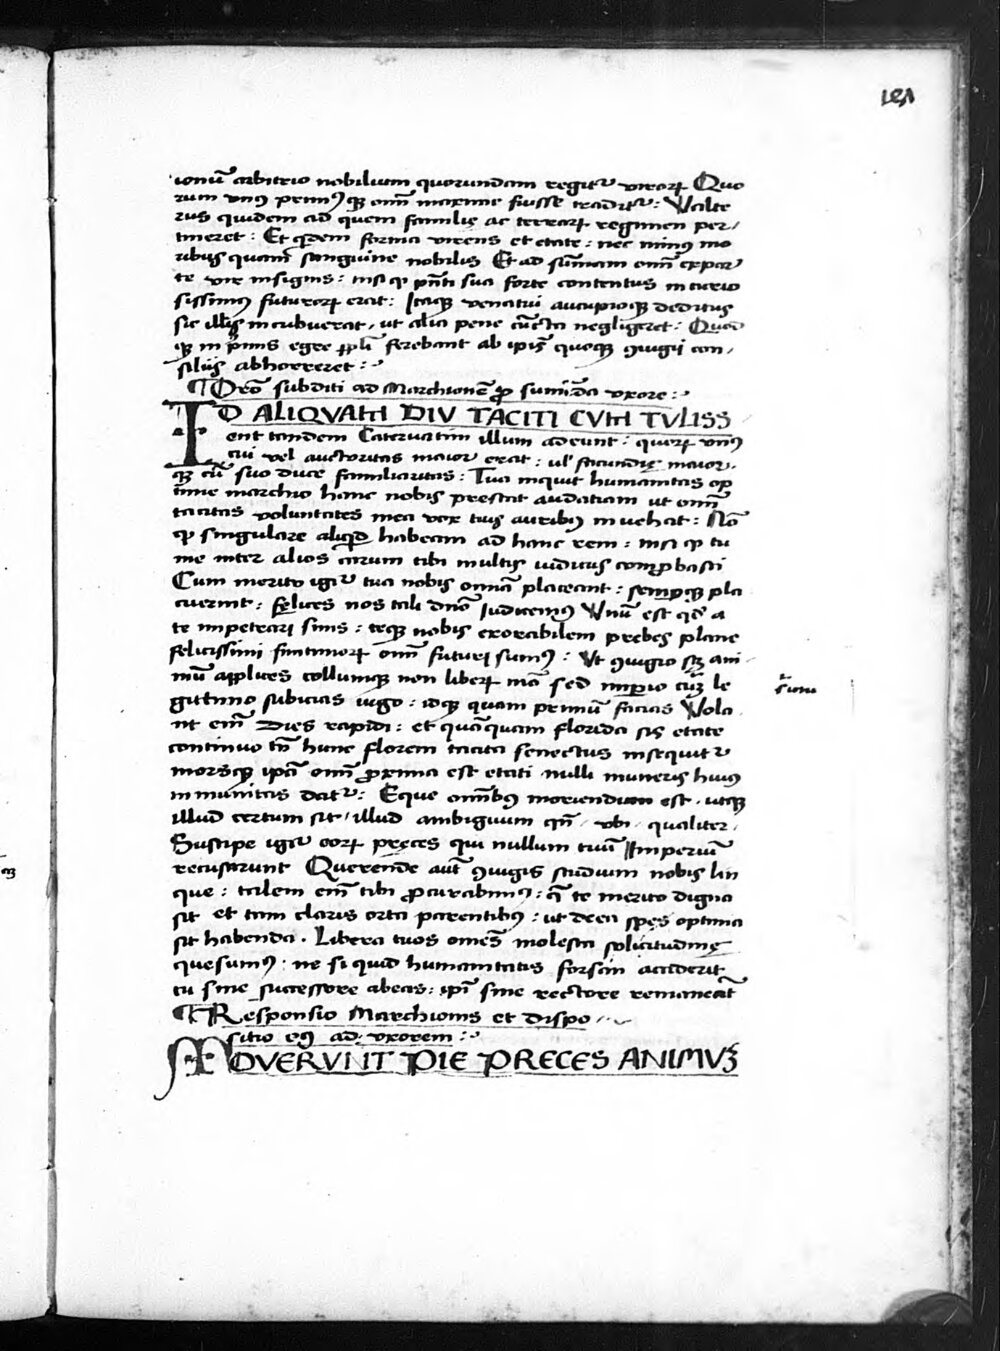 ionū arbitrio nobilium quorundam regitᷣ virorꝝ Quo
rum vnꝰ primꝰqꝫ om̄ maxime fuisse traditᷣ: Walte
rus quidem ad quem familię ac terrarꝝ regimen per/
tineret: Et qͥdem forma virens et etate: nec minꝰ mo
ribus quam sanguine nobilis Et ad sūmam om̄ expar
te vir insignis: nisi ꝙ pn̄ti sua sorte contentus incurio
sissimꝰ futurorꝝ erat: Itaqꝫ venatui aucupioqꝫ deditus
sic illis incubuerat, ut alia pene cūcta negligeret: Quod
qꝫ in primis egre ppl̄i ferebant ab ipīs quoqꝫ ꝯiugii con/
siliis abhorreret:
Orō subditi ad Marchionē ꝓ sumēda vxore:
ID ALIQVAM DIV TACITI CVM TVLISS
ent tandem Cateruatim illum adeunt: quorꝝ vnꝰ
cui vel auctoritas maior erat: ul̄ facundię maior,
qꝫ cū suo duce familiaritas: Tua inquit humanitas op
time marchio hanc nobis prestat audatiam ut om̄
tacitas voluntates mea vox tuis auribꝰ inuehat: Nō
ꝙ singulare aliqͥd habeam ad hanc rem: nisi ꝙ tu
me inter alios carum tibi multis iudiciis comꝓbasti
Cum merito igiᷣ tua nobis omīa placeant: semꝑqꝫ pla
cuerint: felices nos tali dn̄o Iudicemꝰ Vnū est qd̓ a
te impetrari sinis: teqꝫ nobis exorabilem prebes plane
felicissimi finitimorꝝ om̄ futuri sumꝰ: Vt ꝯiugio sꝫ ani
mū applices collumqꝫ non liberꝝ mō sed imꝑio cuꝫ le
gittimo subicias iugo: idqꝫ quam primū facias Vola
nt em̄ Dies rapidi: et quāquam florida sis etate
continuo tn̄ hunc florem tacita senectus insequitᷣ
morsqꝫ ipā om̄ ꝓxima est etati nulli muneris huiꝰ
inmunitas datᷣ: Eque omībꝰ moriendum est, utqꝫ
illud certum sit, illud ambiguum qn̄, vbi, qualiter,
Suscipe igiᷣ eorꝝ preces qui nullum tuū Imperiū
recusarunt Querende aut̄ ꝯiugis studium nobis lin
que: talem em̄ tibi ꝓcurabimꝰ: q̄ te merito digna
sit et tam claris orta parentibꝰ: ut de ea spes optima
sit habenda. Libera tuos omēs molesta solicitudinę
quesumꝰ: ne si quid humanitatis forsan acciderit
tu sine successore abeas: ipī sine rectore remaneāt
Responsio Marchionis et dispo
sitio eiꝰ ad vxorem:
MOVERVNT PIE PRECES ANIMVꝫ